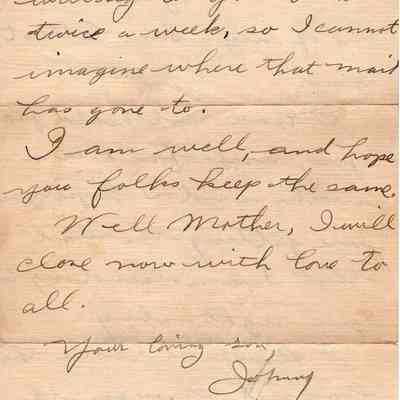 twice a week, so I cannot
imagine where that mail
has gone to.
I am well, and hope
you folks keep the same.
Well Mother, I will
close now with love to
all.
Your loving son,
Johnny